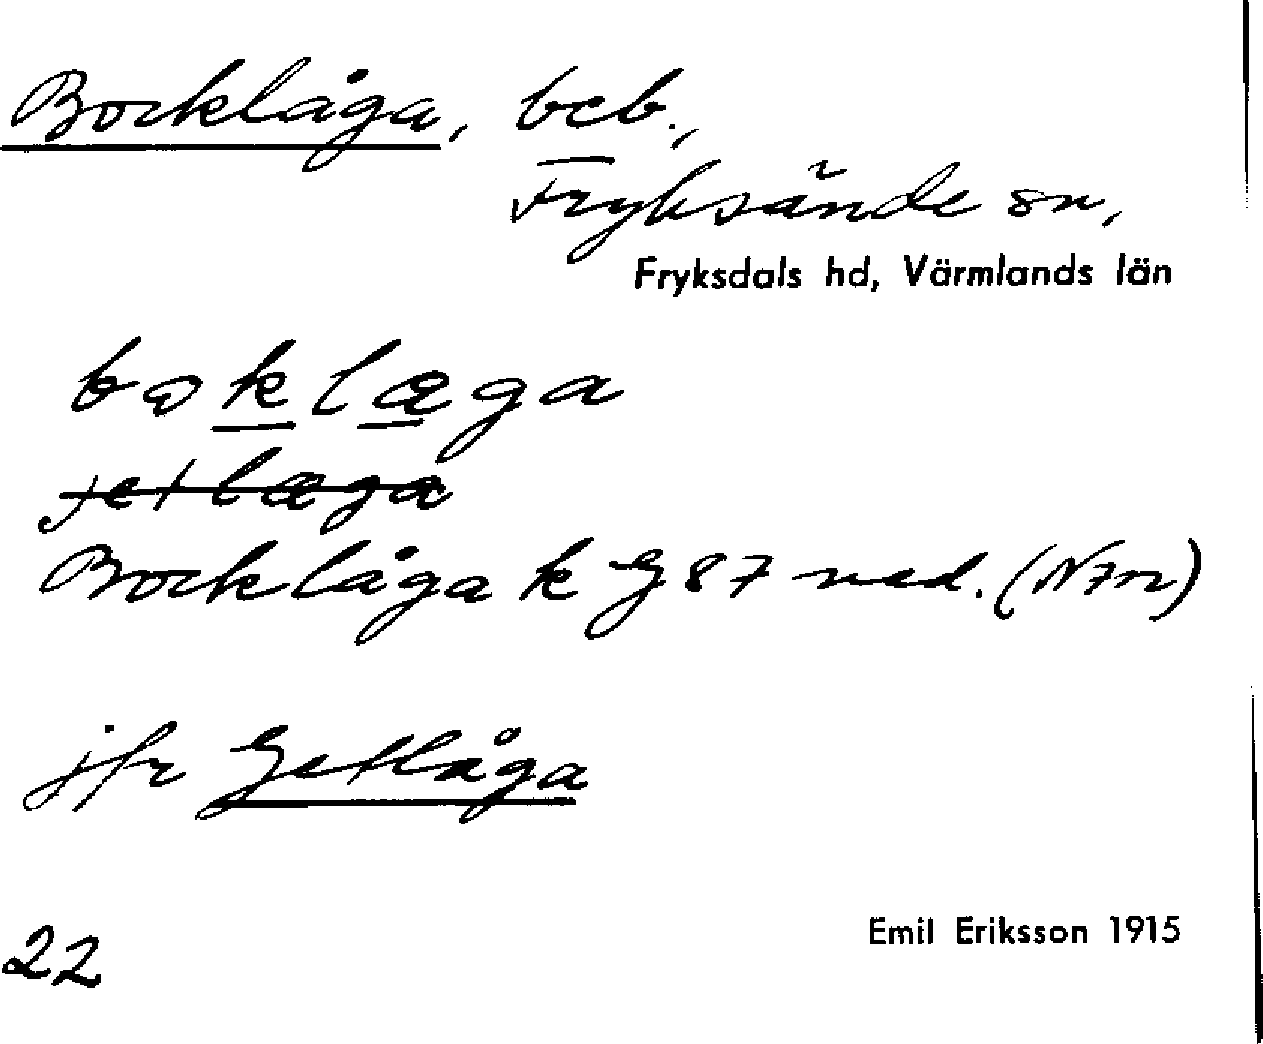 Bocklåga, beb.,
Fryksände sn,
Fryksdals hd, Värmlands län
bɔklæga
jetlæga
Bocklåga k G 87 ned. (N7n)
jfr Getlåga
22
Emil Eriksson 1915